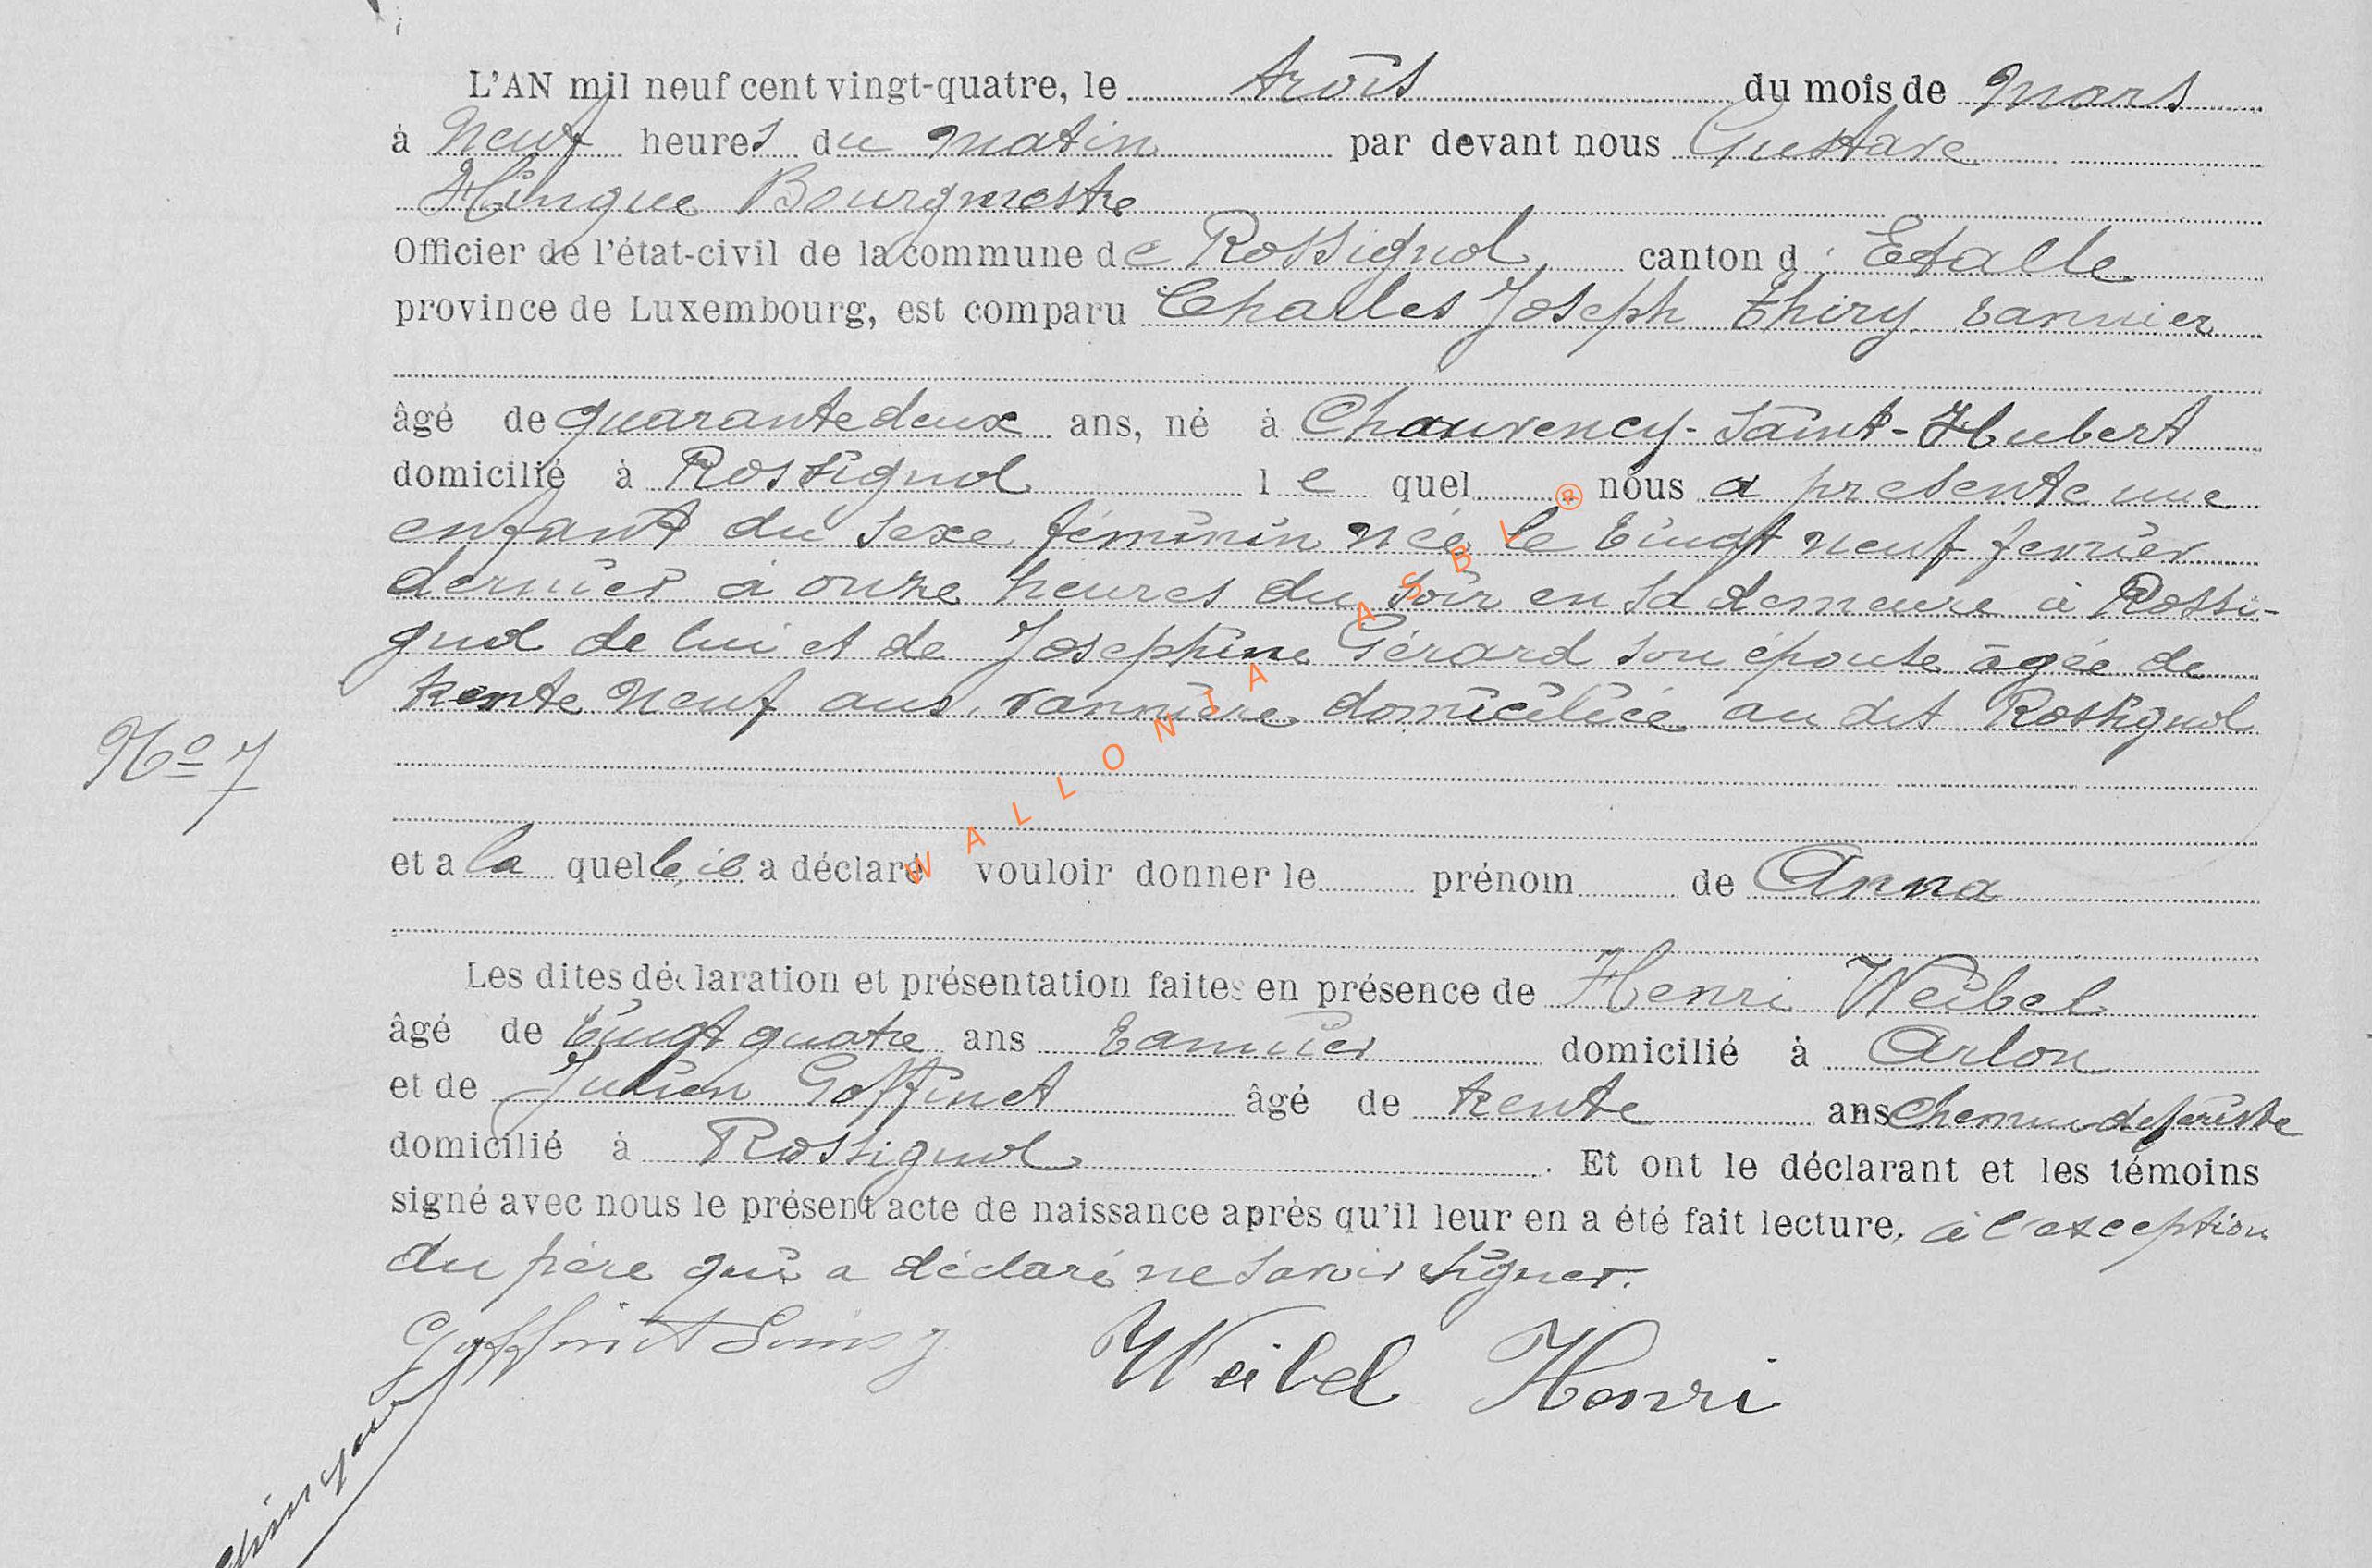 L'AN mil neuf cent vingt-quatre, le trois du mois de mars
à neuf heures du matin par devant nous Gustave
Hingue Bourgmestre
Officier de l'état-civil de la commune de Rossignol canton d' Etalle
province de Luxembourg, est comparu Charles Joseph Thiry vannier
âgé de quarante deux ans, né à Chauvency-Saint-Hubert
domicilié à Rossignol le quel nous a presente une
enfant du sexe féminin née le vingt neuf fevrier
dernier à onze heures du soir en sa demeure à Rossi-
gnol de lui et de Josephine Gérard son épouse âgée de
trente neuf ans, vannière domiciliée au dit Rossignol
No 7
et a la quelle il a déclaré vouloir donner le prénom de Anna
Les dites déclaration et présentation faites en présence de Henri Weibel
âgé de vingt quatre ans vannier domicilié à Arlon
et de Julien Goffinet âgé de trente ans chemin de feriste
domicilié à Rossignol. Et ont le déclarant et les témoins
signé avec nous le présent acte de naissance après qu'il leur en a été fait lecture, à l'exception
du père qui a déclaré ne savoir signer.
Goffinet Weibel Henri
Hingue
WALLONIA ASBL ®